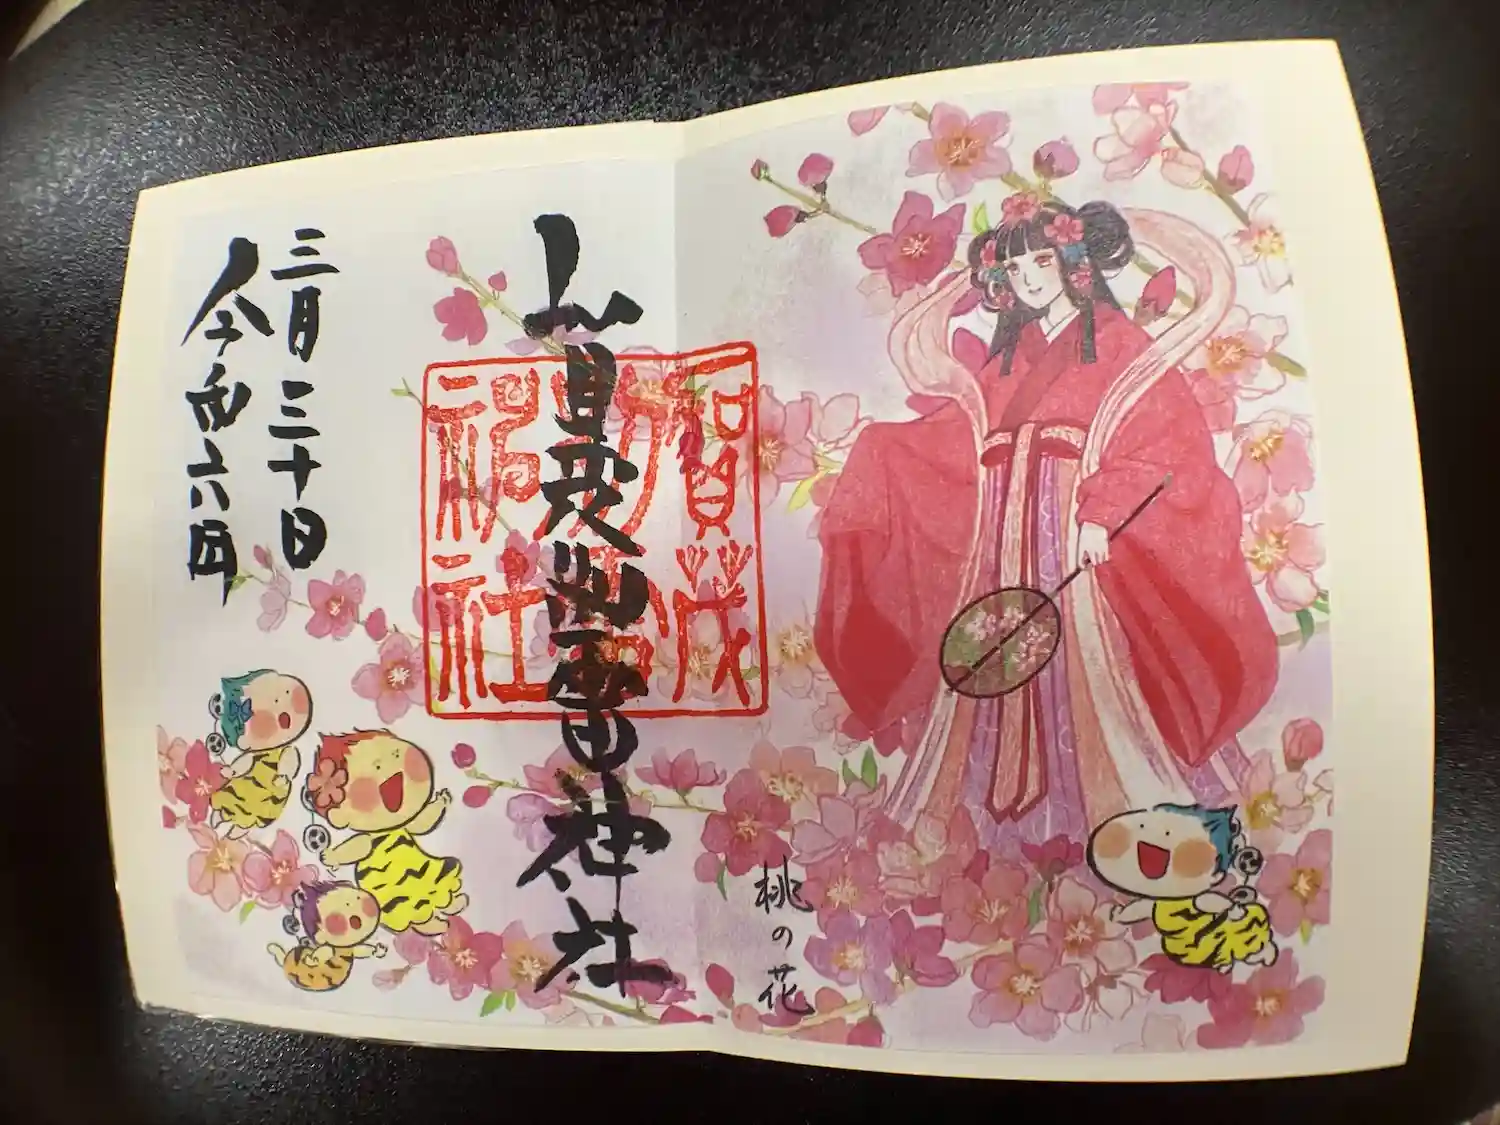 桃の花
賀茂別雷神社
賀茂
別雷
神社
三月三十日
令和六年